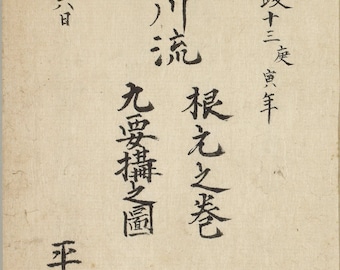 政十三庚寅年
川流
根元之巻
九要搆之圖
六日
平